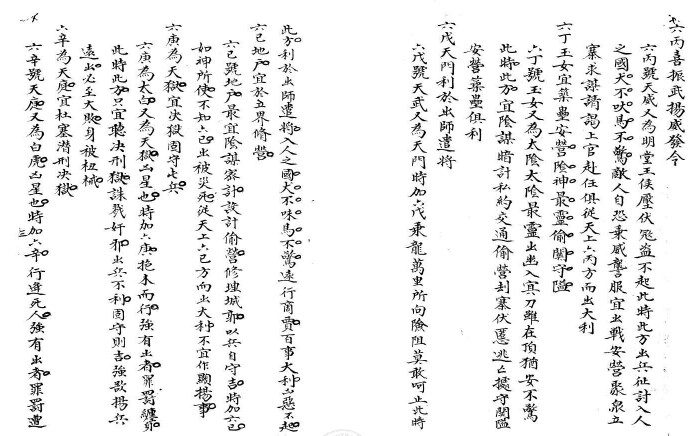 六丙喜振武揚威發令
六丙號天威又為明堂王侯壓伏寇盜不起此時此方出兵征討入人
之國犬不吠馬不驚敵人自恐乘威讋服宜出戰安營聚泉立
寨求謀請謁上官赴任俱從天上六丙方而出大利
六丁玉女宜築壘安營陰神最靈偷關守隘
六丁號玉女又為太陰太陰最靈出幽入冥刀雖在頂猶安不驚
此時此方宜陰謀暗計私約交通偷營刦寨伏匿逃亡據守關隘
安營築壘俱利
六戊天門利於出師遣將
六戊號天武又為天門時加六戊乘龍萬里所向險阻莫敢呵止此時
此方利於出師遣將入人之國犬不吠馬不驚遠行商賈百事大利凶惡不起
六己地戶宜於立界脩營
六己號地戶最宜陰謀密計設計偷營修理城郭以兵自守吉時加六己
如神所使不知六己出被災死從天上六己方向出大利不宜作顯揚事
六庚為天獄宜決獄固守亡兵
六庚為太白又為天獄凶星也時加六庚抱木而行強有出者罪罰纏身
此時此方只宜聽決刑獄誅戮奸邪出兵不利固守則吉強欲揚兵
遠出必至大敗身被杻械
六辛為天庭宜杜塞潛刑決獄
六辛號天庭又為白虎凶星也時加六辛行逢死人強有出者罪罰遭